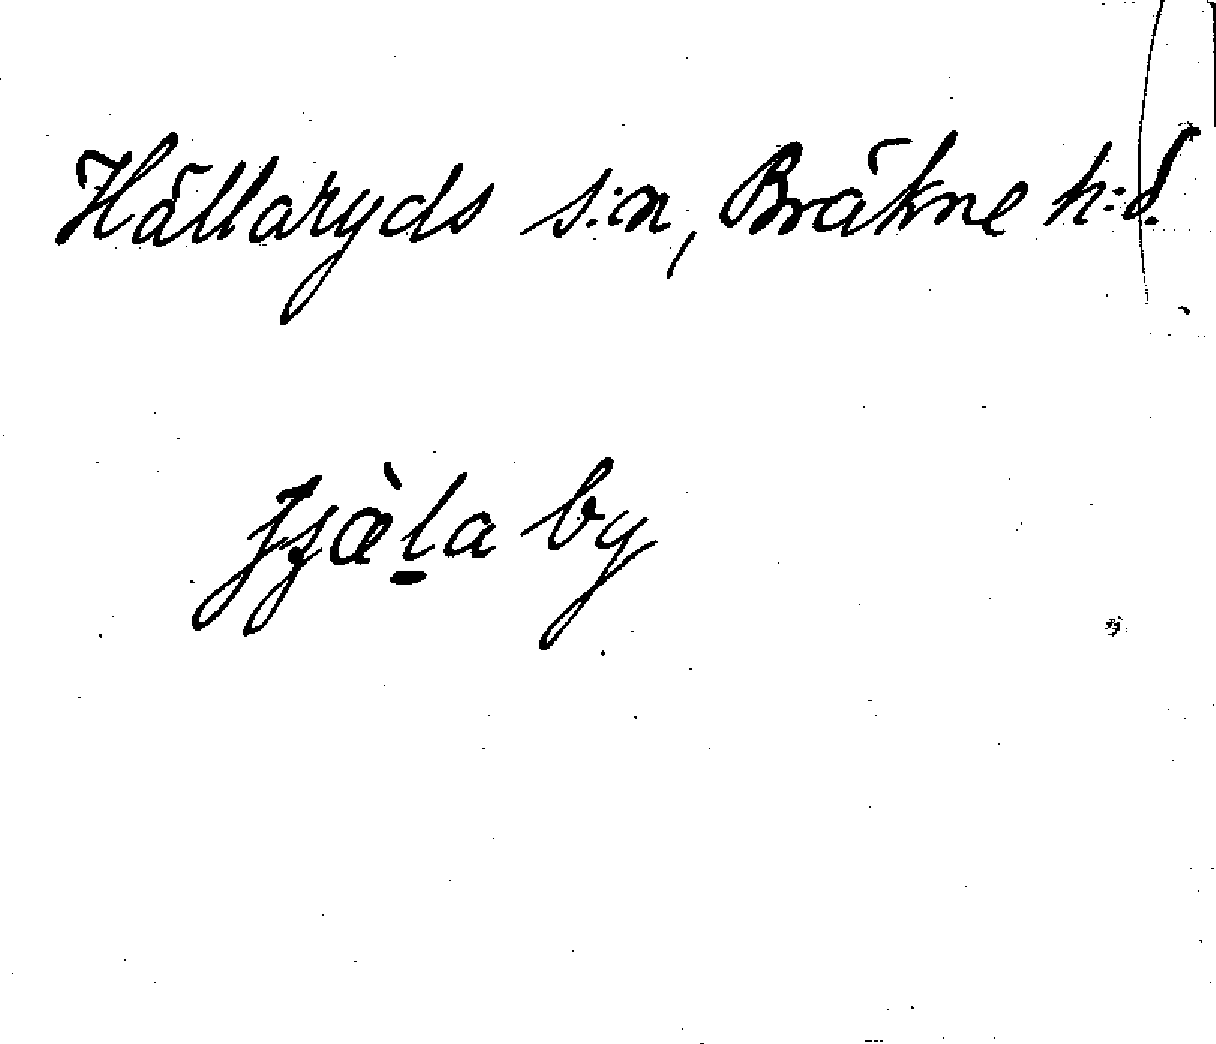 Hällaryds s:n, Bräkne h:d.
jʒæ̀l̲a by